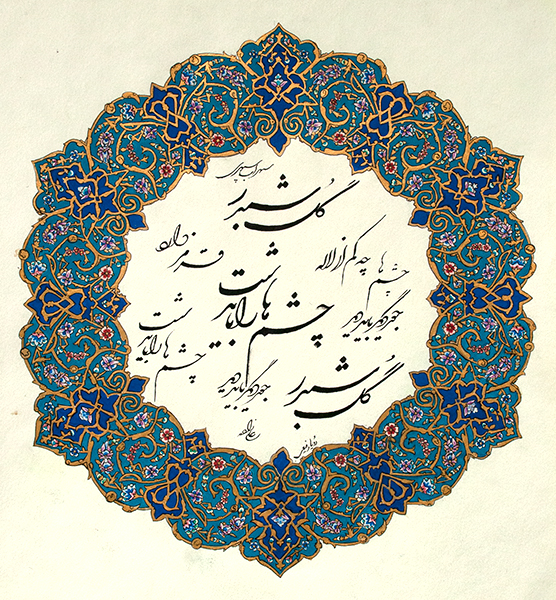 سهراب سپهری
گل شبدر
چه کم از لاله
قرمز دارد
چشم ها
چشم ها را باید شست
جور دیگر باید دید
چشم ها را باید شست
جور دیگر باید دید
گل شبدر